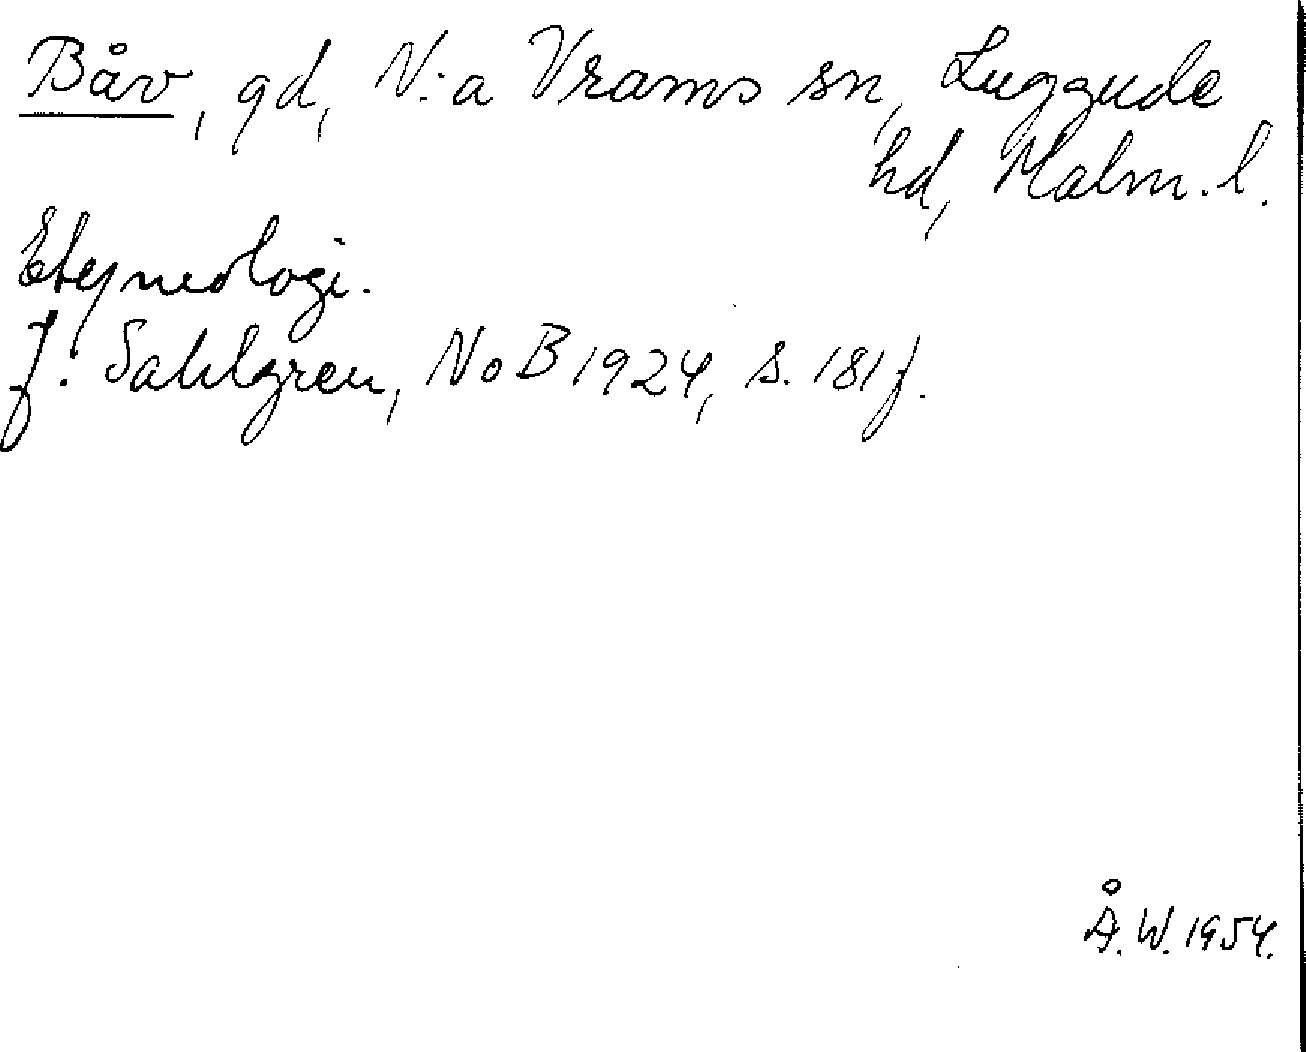 Båv, gd, N:a Vrams sn, Luggude
hd, Malm. l.
Etymologi.
J. Sahlgren, NoB 1924, s. 181 f.
Å. W. 1954.